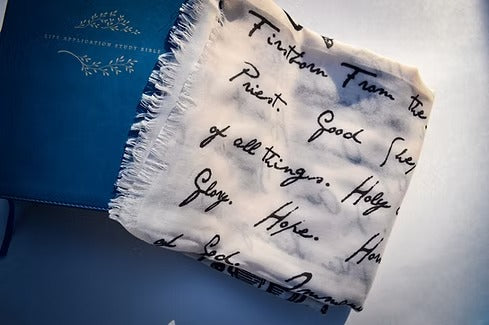 LIFE APPLICATION STUDY BIBLE
Firstborn From the
Priest. Good She
of all things. Holy
Glory. Hope. Hon
of God.